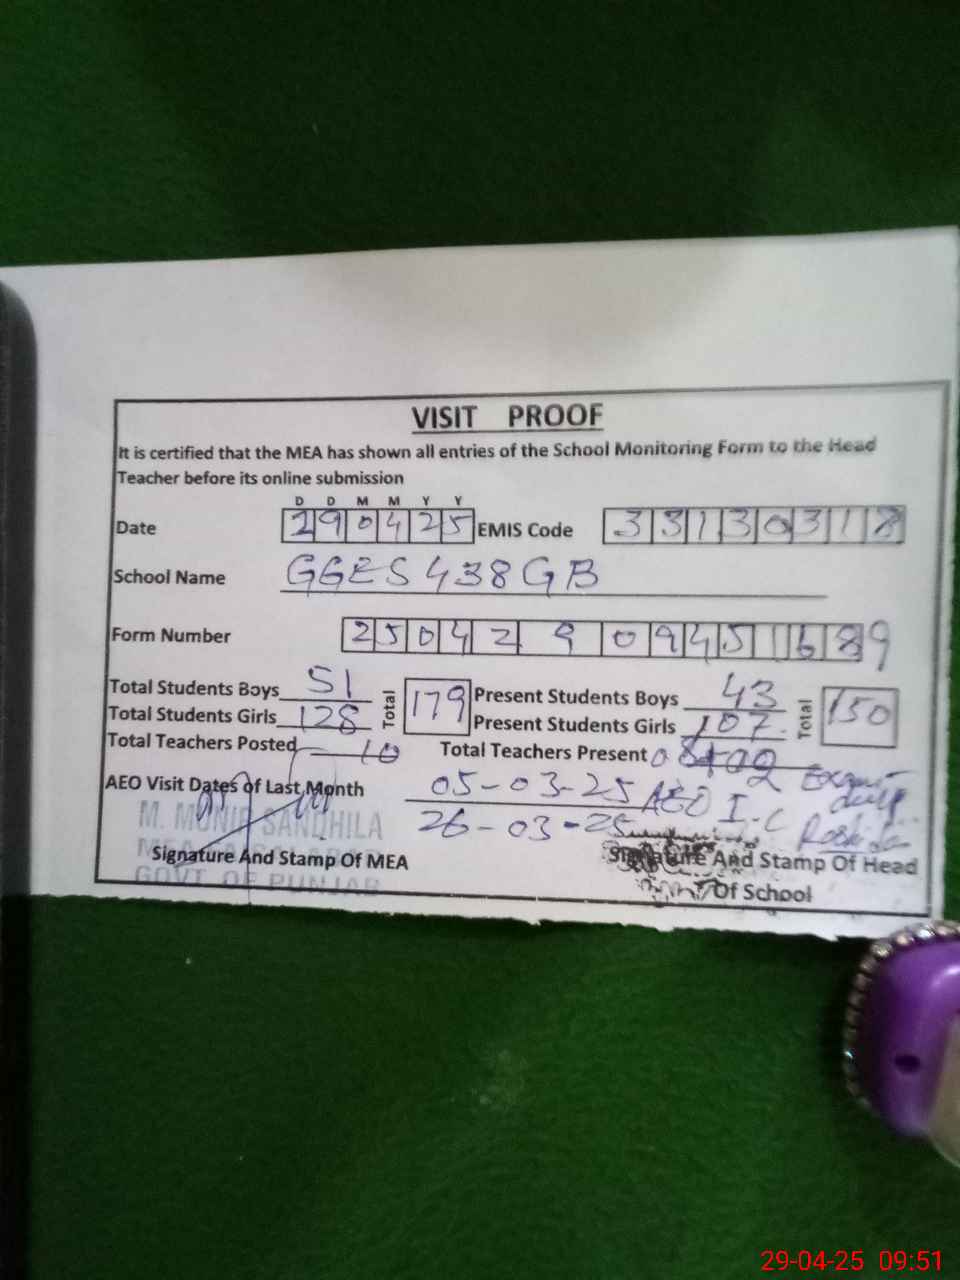 VISIT PROOF
It is certified that the MEA has shown all entries of the School Monitoring Form to the Head
Teacher before its online submission
D D M M Y Y
Date 290425 EMIS Code 33130318
School Name GGES 438 GB
Form Number 25042909451689
Total Students Boys 51 Total 179 Present Students Boys 43 Total 150
Total Students Girls 128 Present Students Girls 107
Total Teachers Posted 10 Total Teachers Present 08+02
AEO Visit Dates of Last Month 05-03-25 AEO I.C
26-03-25
M. MUNIR SANDHILA
Signature And Stamp Of MEA Signature And Stamp Of Head
GOVT OF PUNJAB Of School
29-04-25 09:51